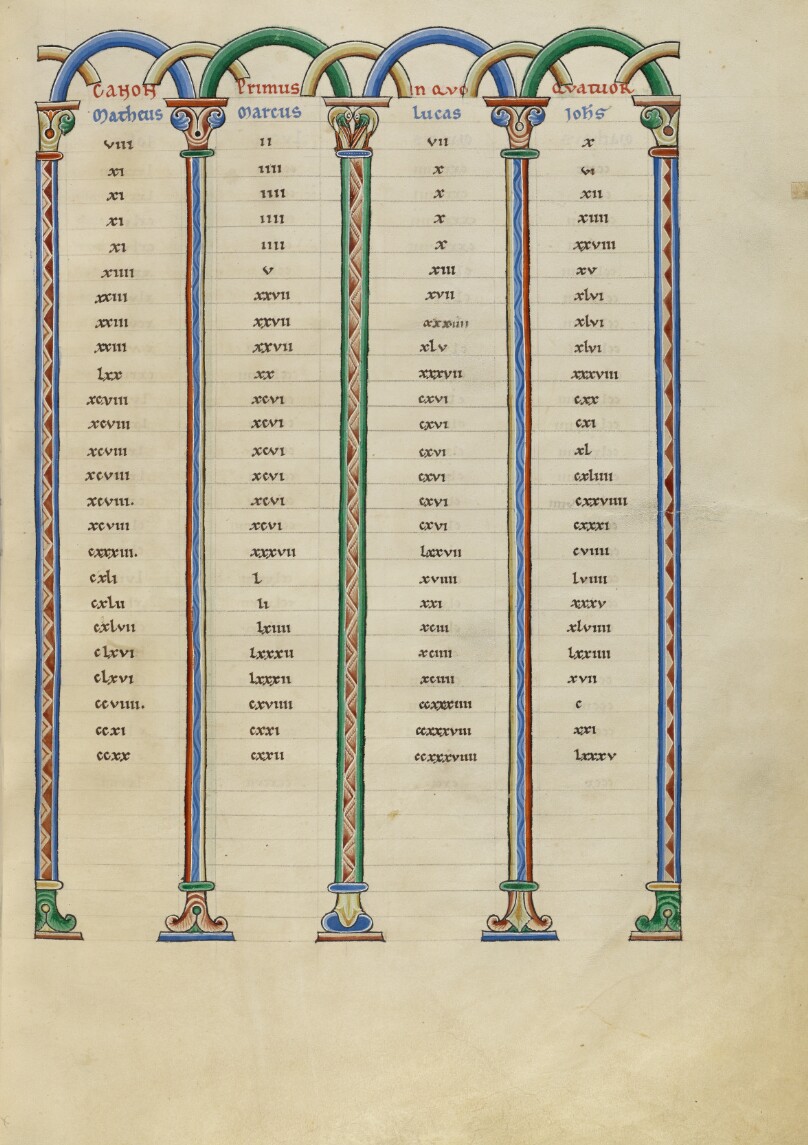 CANON PRIMUS IN QUO QVATUOR
Matheus Marcus Lucas Johs
viii ii vii x
xi iiii x vi
xi iiii x xii
xi iiii x xiiii
xi iiii x xxviii
xiiii v xiii xv
xxiii xxvii xvii xlvi
xxiii xxvii xlvi
xxiii xxvii xlv xlvi
lxx xx xxxvii xxxviii
xcviii xcvi cxvi cxx
xcviii xcvi cxvi cxi
xcviii xcvi cxvi xl
xcviii xcvi cxvi cxliiii
xcviii. xcvi cxvi cxxviiii
xcviii xcvi cxvi cxxxi
cxxxiii. xxxvii lxxvii cviiii
cxli l xviiii lviiii
cxlii li xxi xxxv
cxlvii lxiiii xciii xlviiii
clxvi lxxxii xciiii lxxiiii
clxvi lxxxii xciiii xvii
ccviiii. cxviiii ccxxxiiii c
ccxi cxxi ccxxxviii xxi
ccxx cxxii ccxxxviiii lxxxv